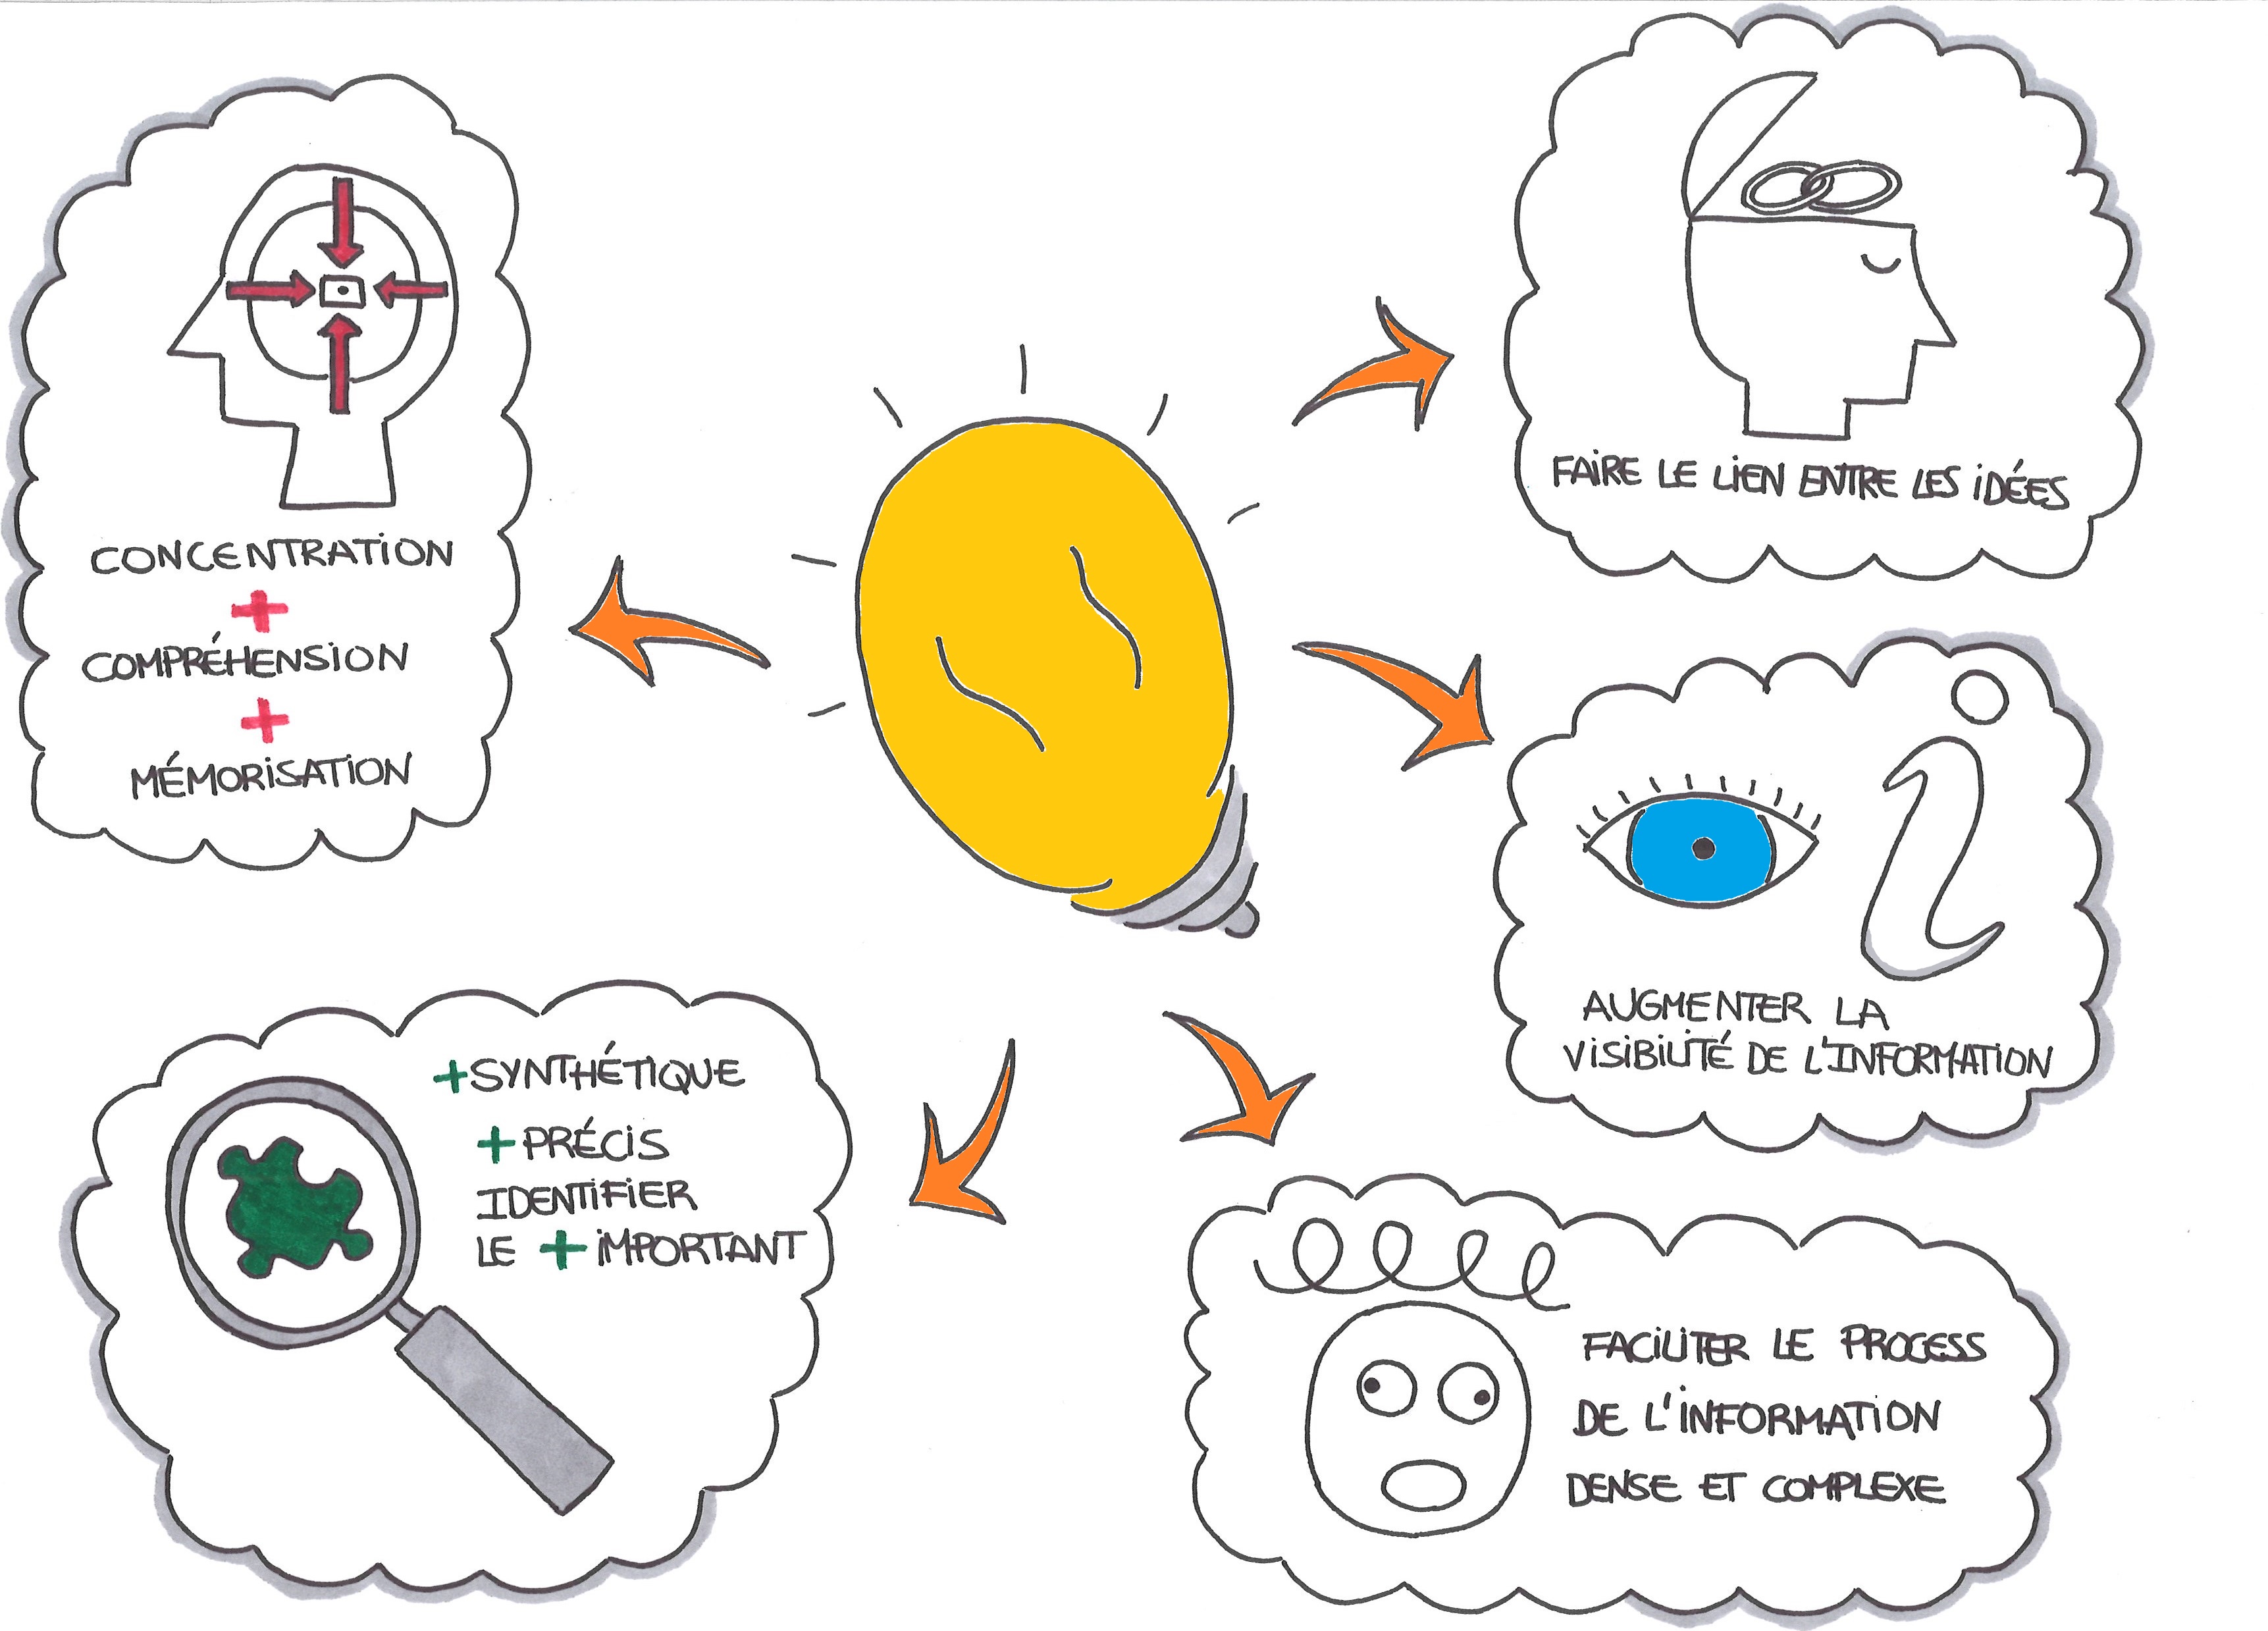 CONCENTRATION
+
COMPRÉHENSION
+
MÉMORISATION
FAIRE LE LIEN ENTRE LES IDÉES
i
AUGMENTER LA
VISIBILITÉ DE L'INFORMATION
+SYNTHÉTIQUE
+PRÉCIS
IDENTIFIER
LE + IMPORTANT
FACILITER LE PROCESS
DE L'INFORMATION
DENSE ET COMPLEXE